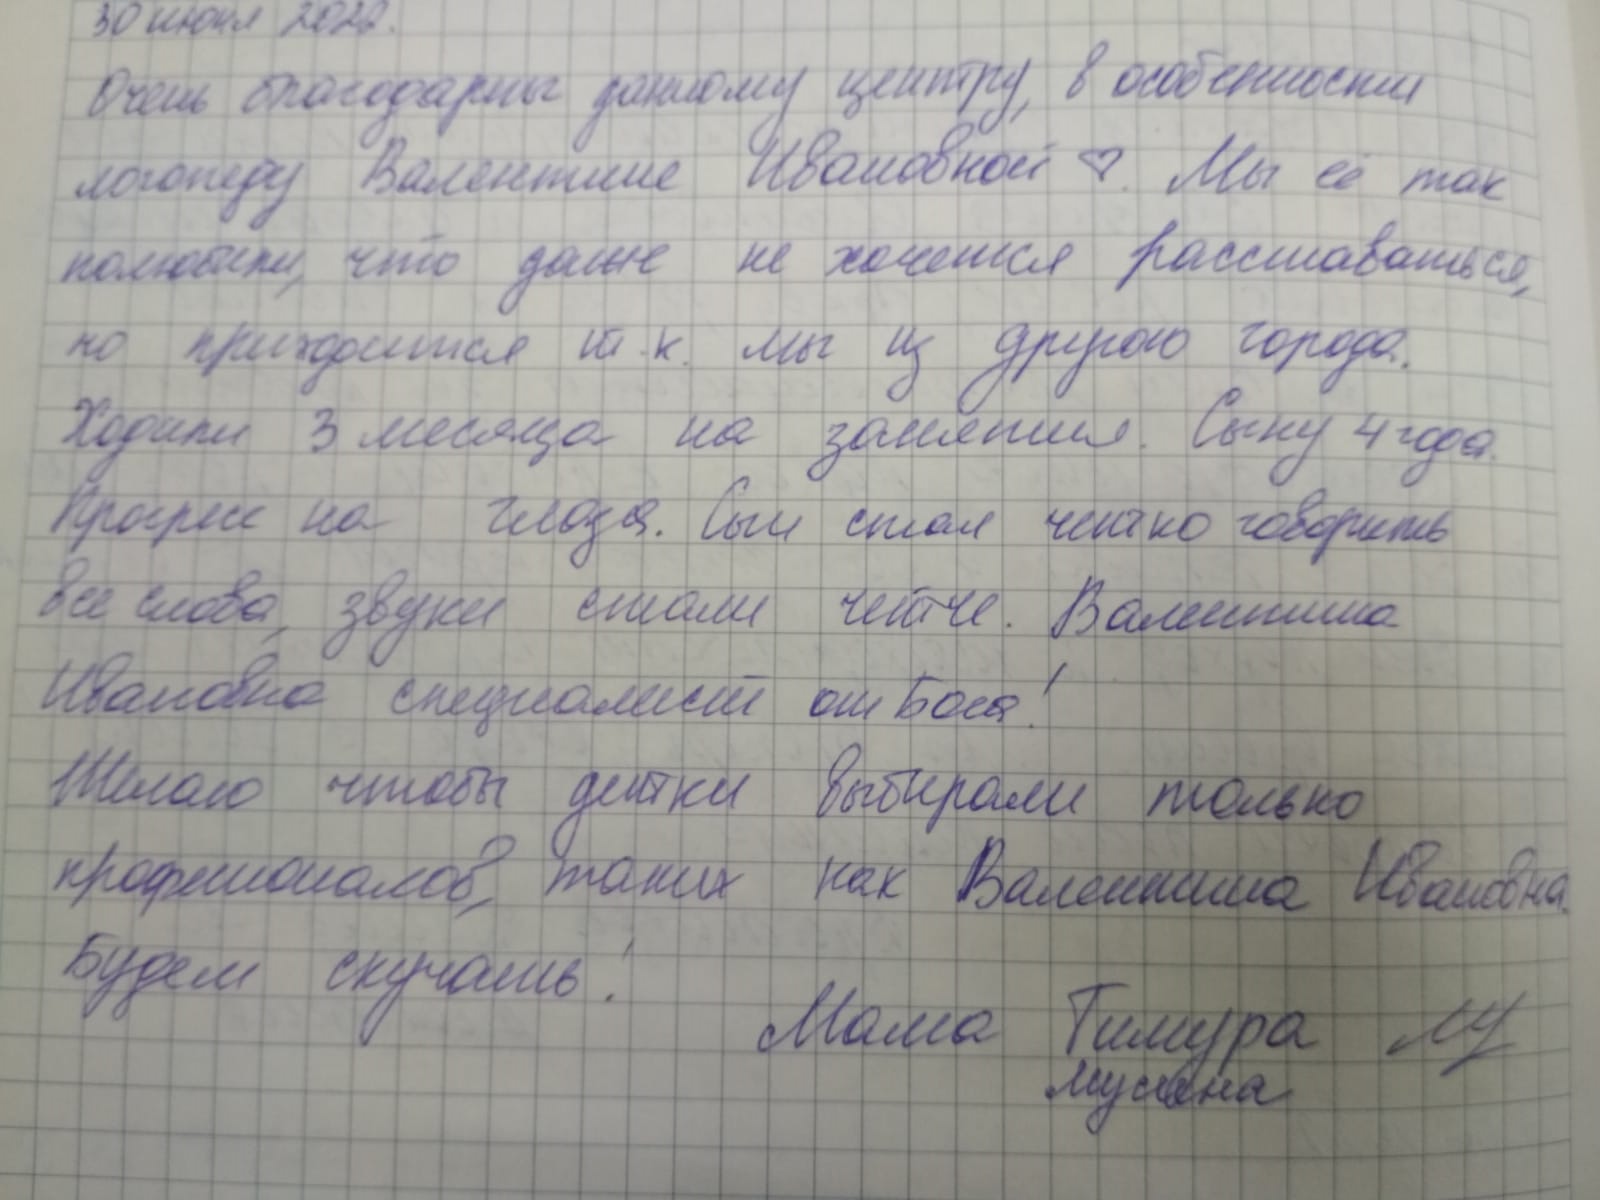 30 июня 2022.
Очень благодарны данному центру, в особенности
логопеду Валентине Ивановной ♡. Мы её так
полюбили, что даже не хочется расставаться,
но приходится т.к. мы из другого города.
Ходили 3 месяца на занятия. Сыну 4 года.
Прогресс на глаза. Сын стал четко говорить
все слова, звуки стали четче. Валентина
Ивановна специалист от Бога!
Желаю чтобы детки выбирали только
профессионалов, таких как Валентина Ивановна.
Будем скучать!
Мама Тимура